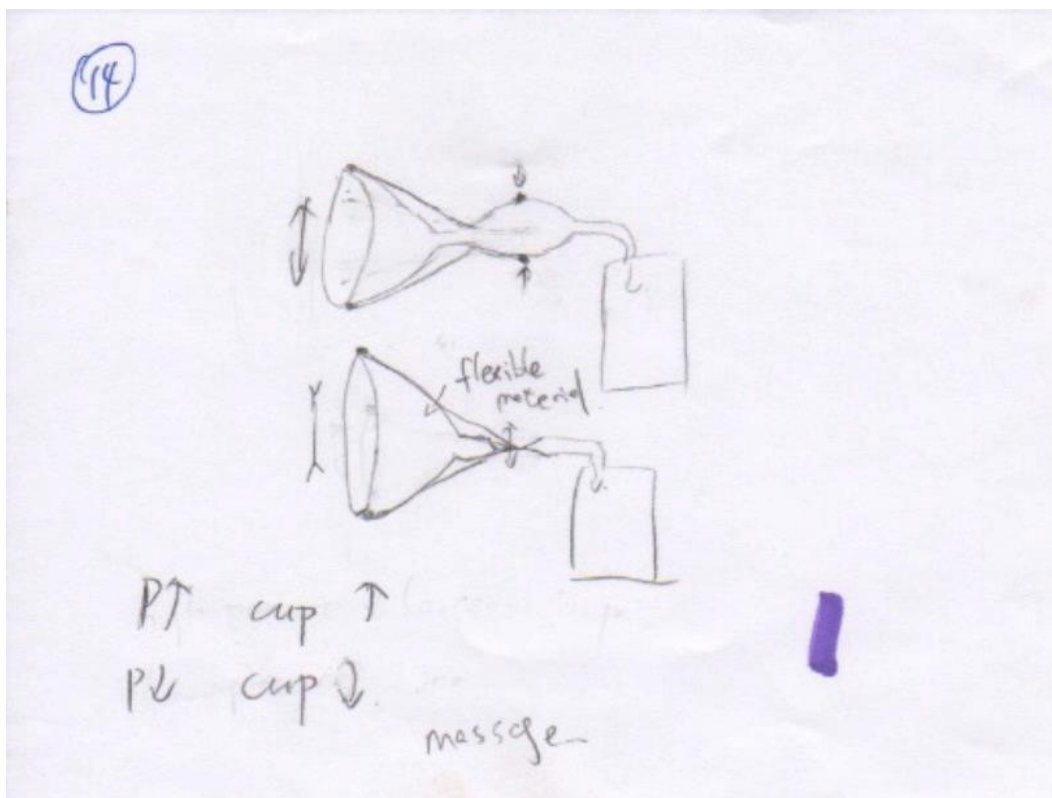 14
flexible
material.
P↑ cup ↑
P↓ cup ↓.
massage